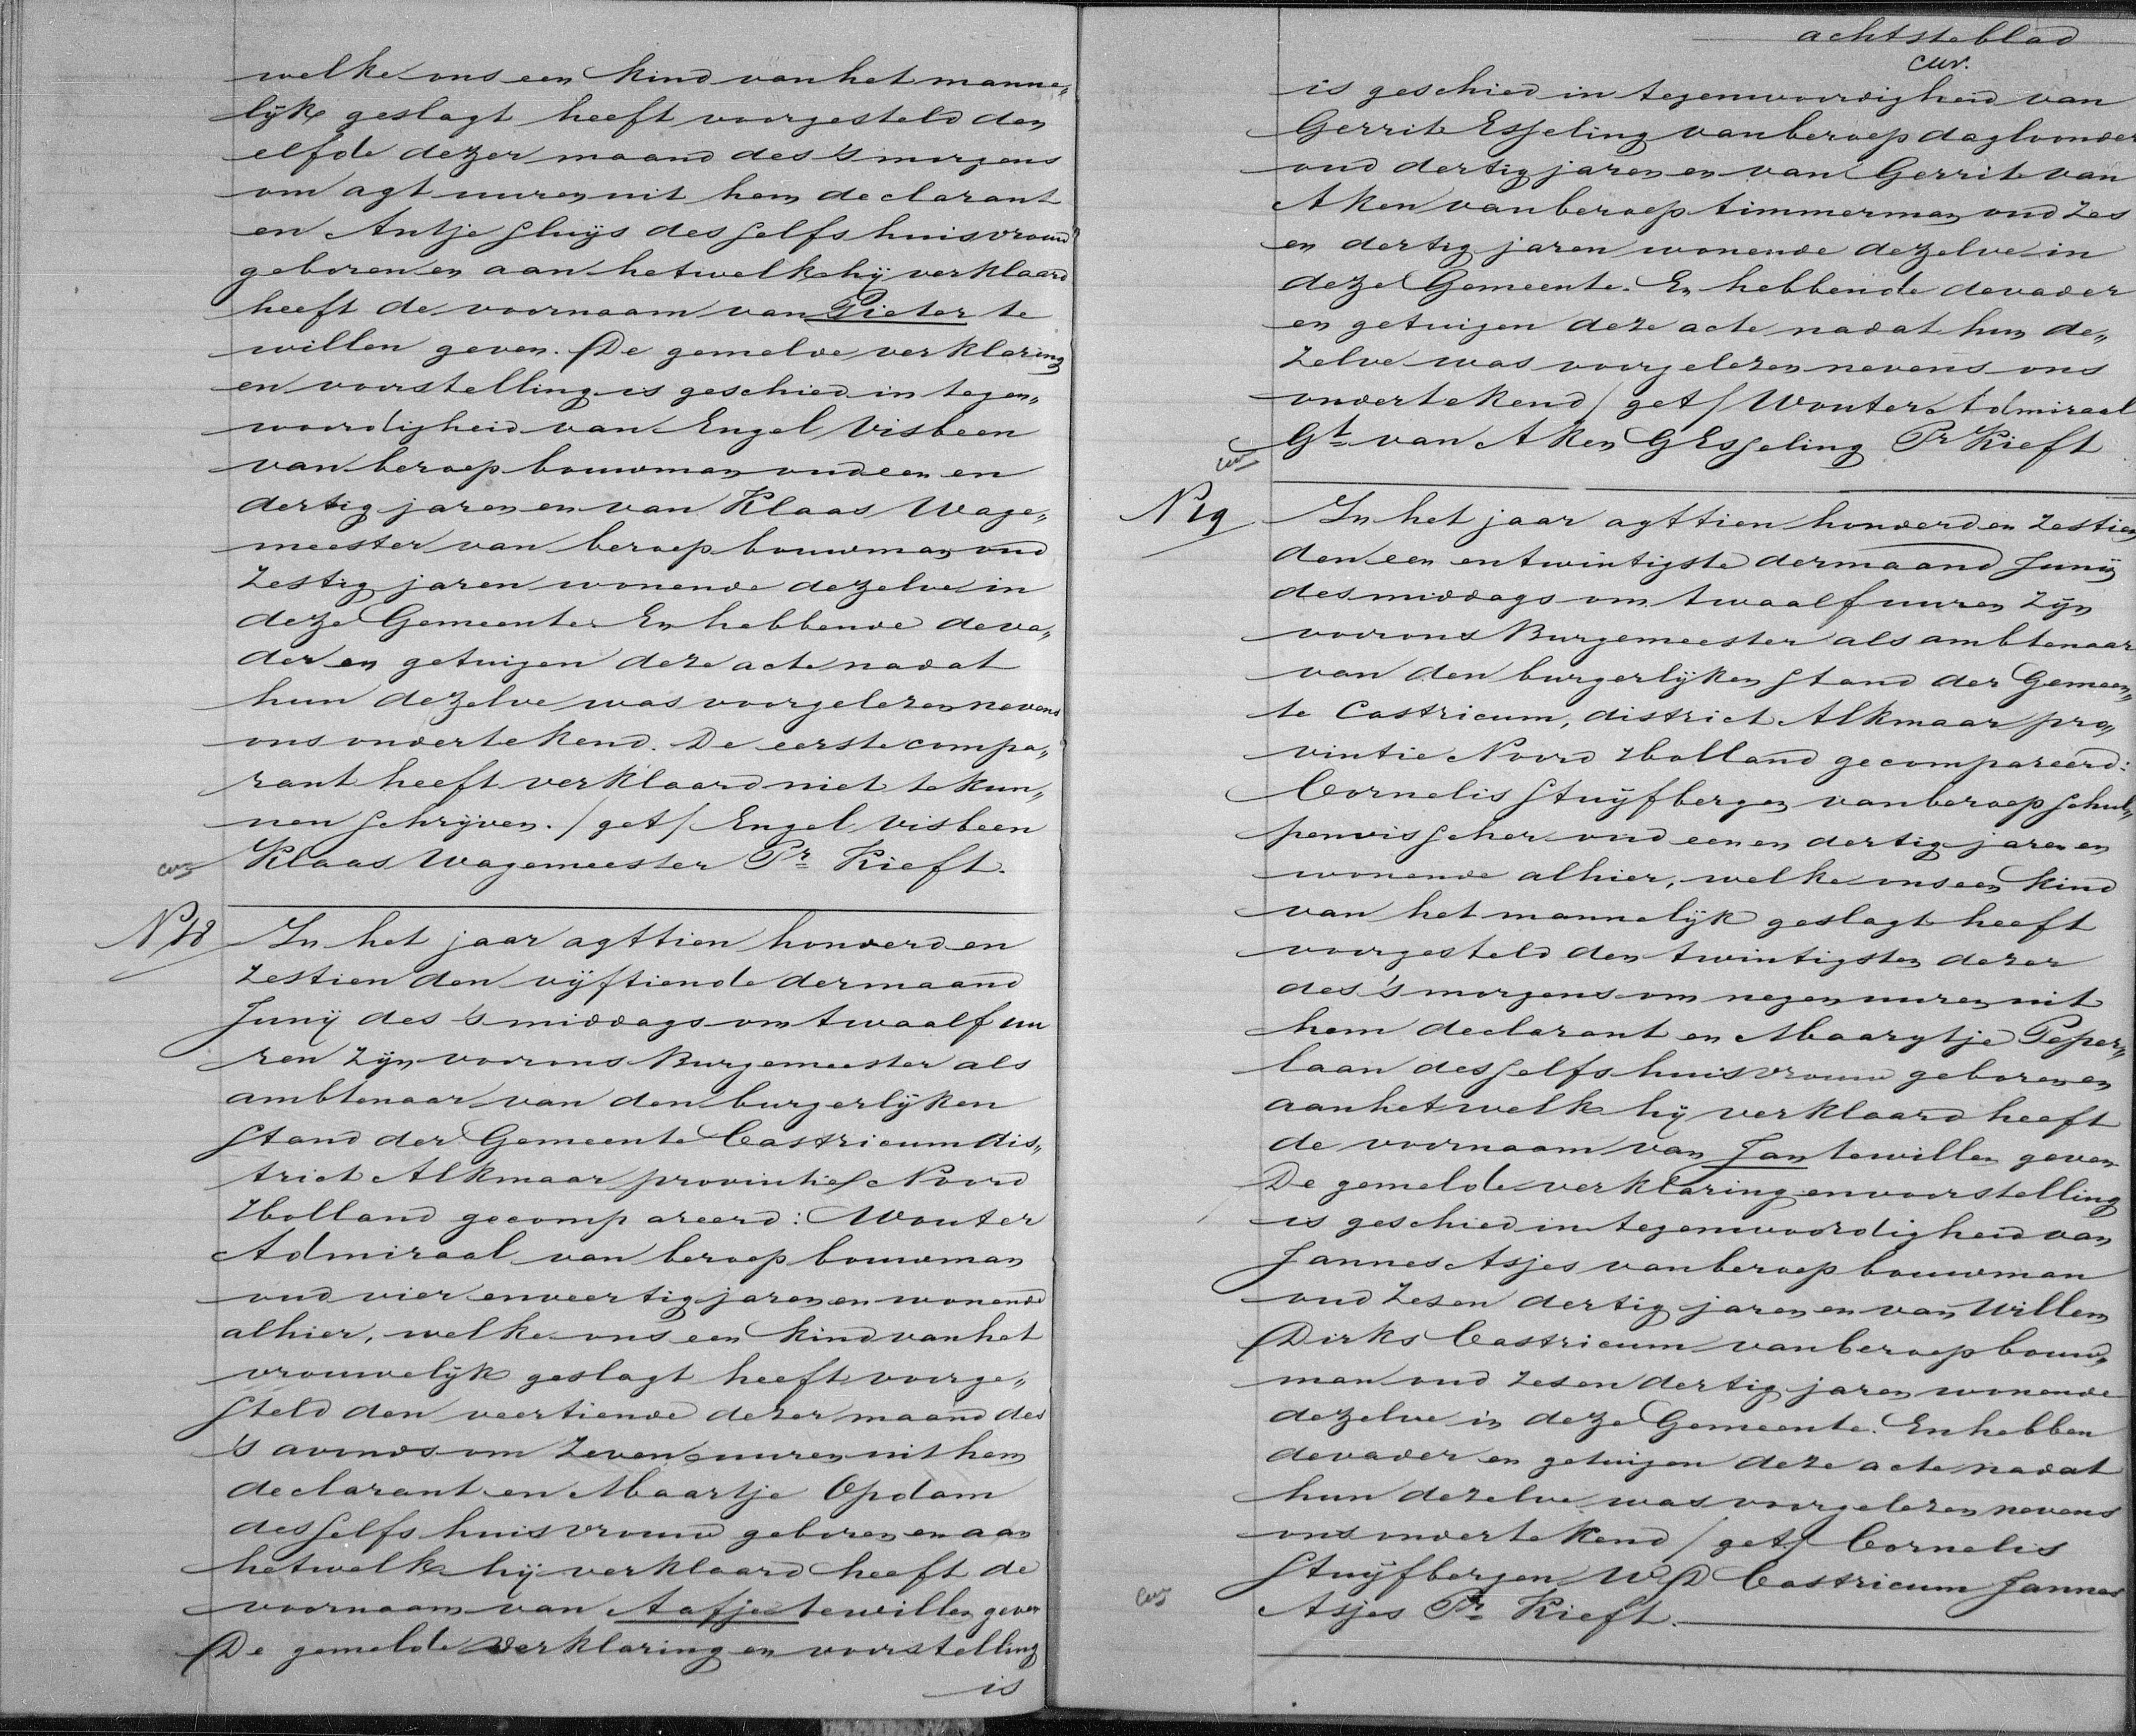 welke ons een kind van het manne„
lijk geslagt heeft voorgesteld den
elfde dezer maand des 's morgens
om agt uuren uit hem declarant
en Antje Sluijs desselfs huisvrouw
geboren en aan hetwelk hij verklaard
heeft de voornaam van Pieter te
willen geven. De gemelde verklaring
en voorstelling is geschied in tegen„
woordigheid van Engel Visbeen
van beroep bouwman oud een en
dertig jaren en van Klaas Wage„
meester van beroep bouwman oud
zestig jaren wonende dezelve in
deze Gemeente En hebbende de va„
der en getuigen deze acte nadat
hun dezelve was voorgelezen nevens
ons ondertekend. De eerste compa„
rant heeft verklaard niet te kun„
nen schrijven. /get/ Engel Visbeen
Klaas Wagemeester Pr Kieft.
N 18 In het jaar agttien honderd en
zestien den vijftiende der maand
Junij des 's middags om twaalf uu
ren zijn voor ons Burgemeester als
ambtenaar van den burgerlijken
stand der Gemeente Castricum dis„
trict Alkmaar provintie Noord
Holland gecompareerd: Wouter
Admiraal van beroep bouwman
oud vier en veertig jaren en wonende
alhier, welke ons een kind van het
vrouwelijk geslagt heeft voorge„
steld den veertiende dezer maand des
's avonds om zeven uuren uit hem
declarant en Maartje Opdam
desselfs huisvrouw geboren en aan
hetwelk hij verklaard heeft de
voornaam van Aafje te willen geven
De gemelde verklaring en voorstelling
is
achtste blad
is geschied in tegenwoordigheid van
Gerrit Esseling van beroep dagloonder
oud dertig jaren en van Gerrit van
Aken van beroep timmerman oud zes
en dertig jaren wonende dezelve in
deze Gemeente. En hebbende de vader
en getuigen deze acte nadat hun de„
zelve was voorgelezen nevens ons
ondertekend /get/ Wouter Admiraal
Gt van Aken G Esseling Pr Kieft
N 19 In het jaar agttien honderd en zestien
den een en twintigste der maand Junij
des middags om twaalf uuren zijn
voor ons Burgemeester als ambtenaar
van den burgerlijken stand der Gemeen„
te Castricum, district Alkmaar pro„
vintie Noord Holland gecompareerd:
Cornelis Stuijfbergen van beroep schul„
penvisscher oud een en dertig jaren en
wonende alhier, welke ons een kind
van het mannelijk geslagt heeft
voorgesteld den twintigsten dezer
des 's morgens om negen uuren uit
hem declarant en Maarytje Peper„
laan desselfs huisvrouw geboren en
aan hetwelk hij verklaard heeft
de voornaam van Jan te willen geven
De gemelde verklaring en voorstelling
is geschied in tegenwoordigheid van
Jannes Asjes van beroep bouwman
oud zes en dertig jaren en van Willem
Dirks Castricum van beroep bouw„
man oud zes en dertig jaren wonende
dezelve in deze Gemeente. En hebben
de vader en getuigen deze acte nadat
hun dezelve was voorgelezen nevens
ons ondertekend /get/ Cornelis
Stuijfbergen W D Castricum Jannes
Asjes Pr Kieft.